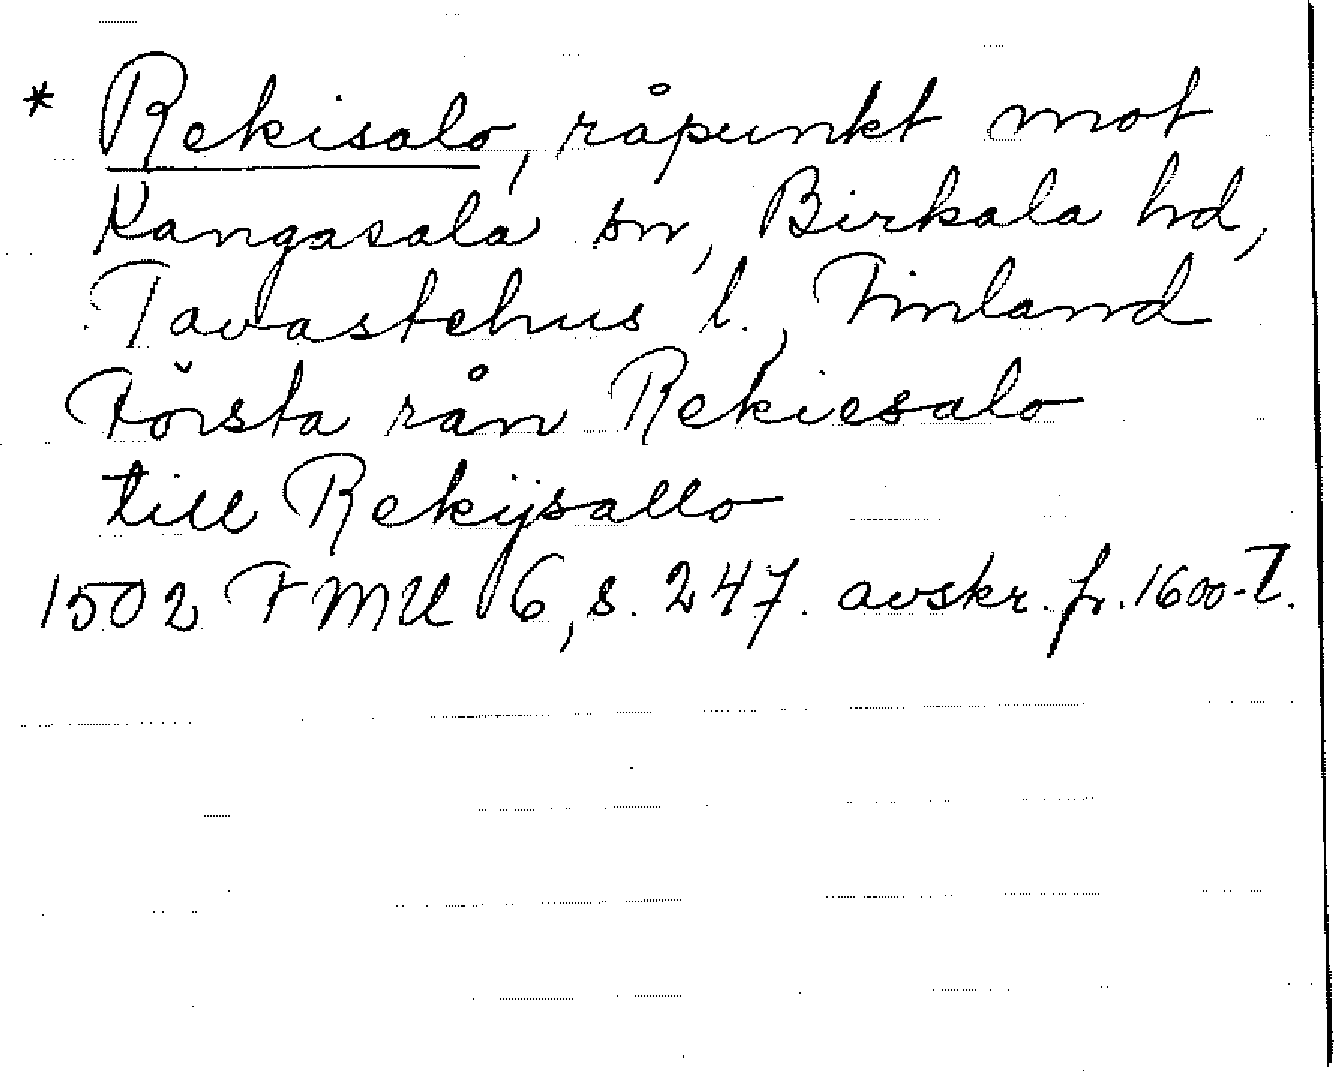 * Rekisalo, råpunkt mot
Kangasala sn, Birkala hd,
Tavastehus l., Finland
Första rån Rekiesalo
till Rekijsallo
1502 FMU 6, s. 247. avskr. fr. 1600-T.